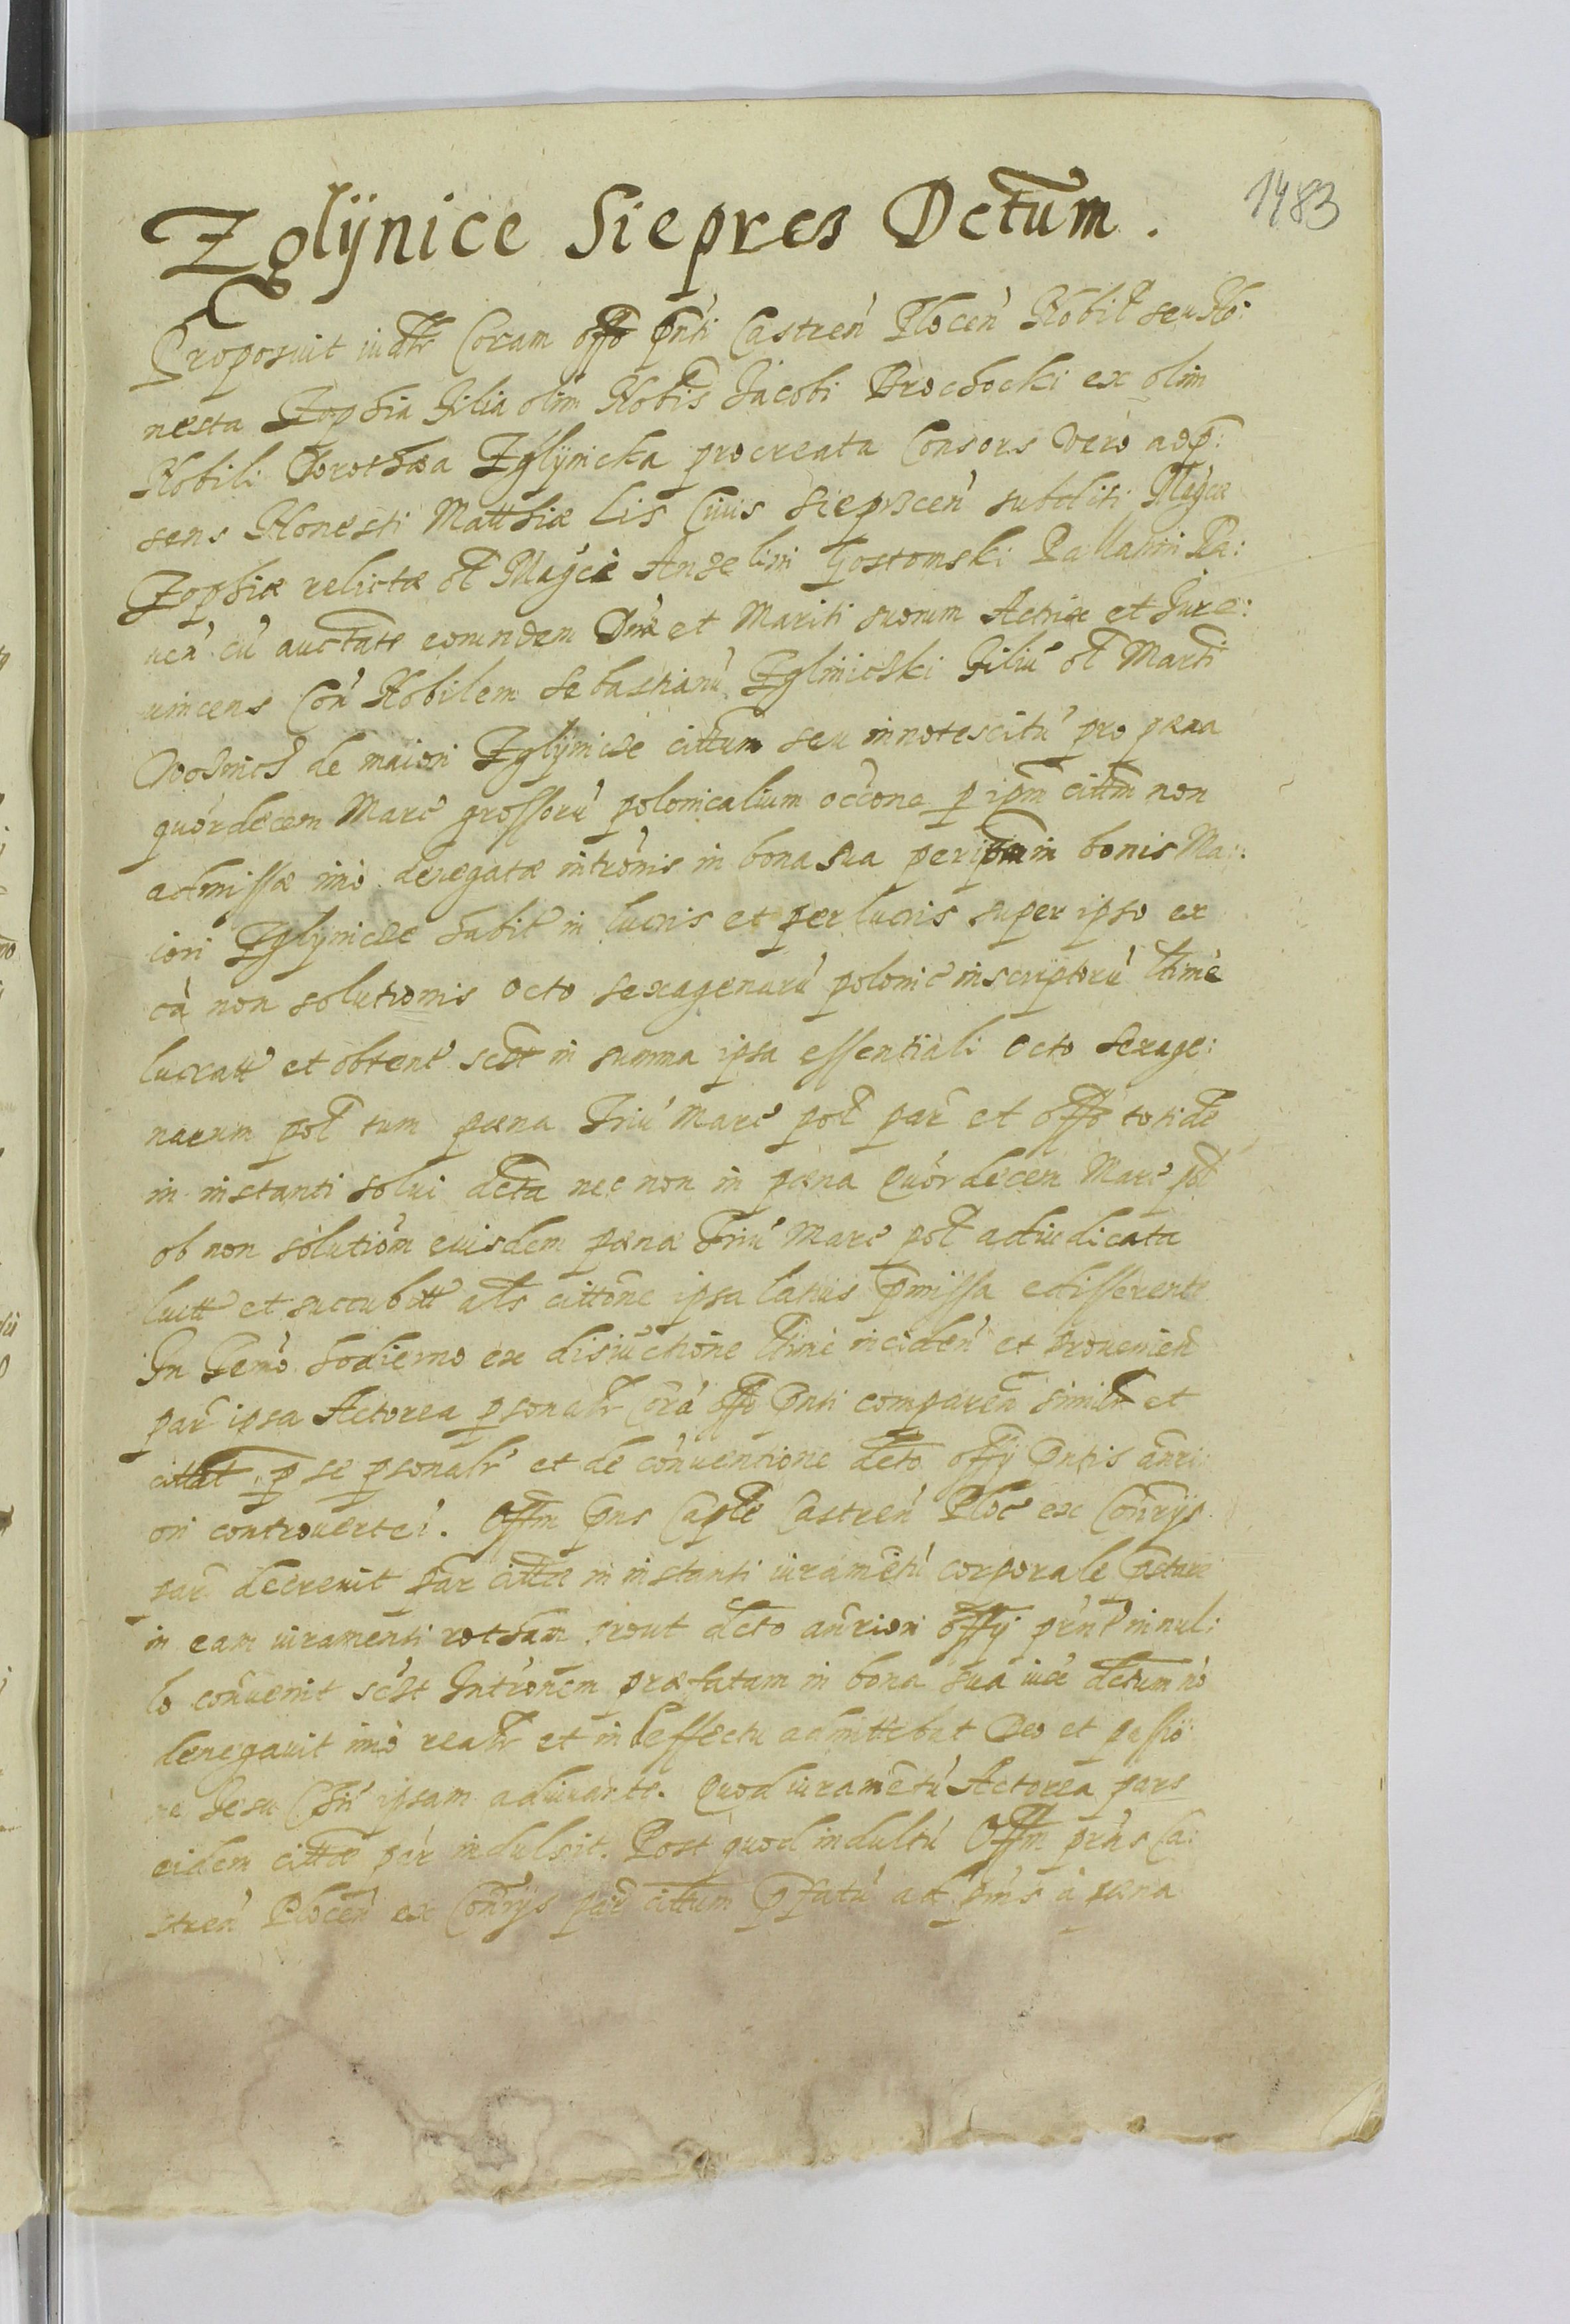 1483
Zglÿnice Sieprcz Dctum.
Proposuit iudtr Coram offo pnti Castreń Ploceń Nobil seu Ho:
nesta Zophia Filia olim Nobis Jacobi Brochocki ex olim
Nobili Dorothæa Zglÿnicka procreata Consors vero ad p:
sens Honesti Matthiæ Lis Ciuis Sieprsceń subditi Mağcæ
Zophiæ relictæ ol Mağci Anselmi Gostomski Pallatini Ra:
ueń cu auctate eorundem Dnæ et Mariti suorum Actrix et Jure:
uincens Con Nobilem Sebastianu Zglinicski Filiu ol Marti
de maiori Zglÿnicze cittum seu innotescitu pro pæna
quordecem Marc grossoru polonicalium occone p ipm cittm non
admissæ imo denegatæ intronis in bona sua per ipsum in bonis Ma:
iori Zglynicze habit in lucris et perlucris super ipso ex
ca non solutionis octo sexagenaru polonic inscriptoru ltime
lucratt et obtent scilt in summa ipsa essentiali octo sexage:
narum pol tum pæna Triu Marc pol par et offo totide
in instanti solui dcta nec non in pæna Quordecem Marc pol
ob non solutiom euisdem pænæ Triu Marc pol adiudicata
luitt et succubitt als cittone ipsa latius pmissa edisserente
In Termo hodierno ex disiuctione ltime inciden et prouenien
par ipsa Actorea psonalr Cora offo pnti comparen similr et
cittat p se psonalr et de conuentione dcto offij pntis anri
ori controuerten. Offm pns Caple Castreń Ploc ex Conrijs
par decreuit par cittæ in instanti iuramentu corporale pstare
in eam iuramenti rotham prout dcto anriori offij prnt in nul:
lo conuenit scilt Intronem præfatam in bona sua iux dctum no
denegauit imo realr et in effectu admittebat Deo et passio
ne Jesu Chri ipsam adiuuante. Quod iuramentu Actorea pars
eidem cittæ par indulsit. Post quod indultu Offm prns Ca:
streń Ploceń ex Conrijs par cittum pfatu ad pns a pæna